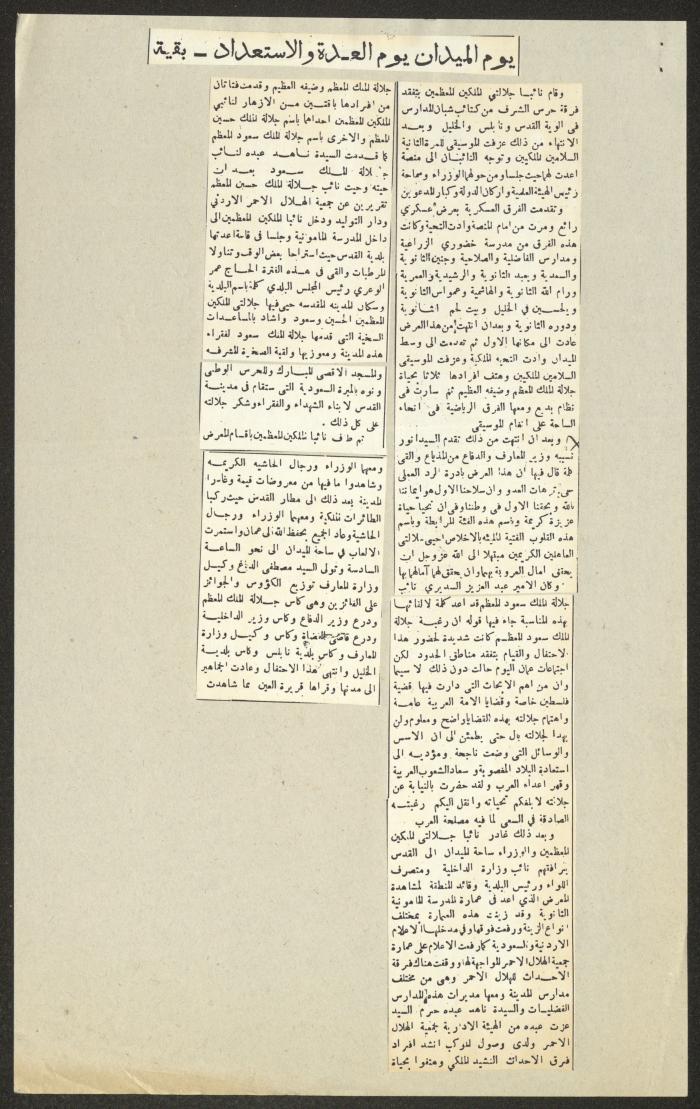 يوم الميدان يوم العـدة والاستعداد ـ بقية
وقام نائبـا جلالتي الملكين المعظمين بتفقد
فرقة حرس الشرف من كتائب شبان المدارس
في الوية القدس ونابلس والخليل وبعـد
الانتهاء من ذلك عزفت الموسيقى للمرة الثانية
السلامين الملكيين وتوجه النائبـان الى منصة
اعدت لهما حيث جلسا ومن حولهما الوزراء وسماحة
رئيس الهيئة العلمية واركان الدولة وكبار المدعوين
وتقدمت الفرق العسكرية بعرض عسكري
رائع ومرت من امام المنصة وادت التحية وكانت
هذه الفرق من مدرسة خضوري الزراعية
ومدارس الفاضلية والصلاحية وجنين الثانوية
والسعدية ويعبد الثانوية والرشيدية والعمرية
ورام الله الثانوية والهاشمية وعمواس الثانوية
والحسين في الخليل وبيت لحم الثانوية
ودوره الثانوية وبعد ان انتهت من هذا العرض
عادت الى مكانها الاول ثم تقدمت الى وسط
الميدان وادت التحية الملكية وعزفت الموسيقى
السلامين الملكيين وهتف افرادها ثلاثا بحياة
جلالة الملك المعظم وضيفه العظيم ثم سارت في
نظام بديع ومعها الفرق الرياضية في انحاء
الساحة على انغام الموسيقى
وبعد ان انتهت من ذلك تقدم السيد انور
نسيبه وزير المعارف والدفاع من المذياع والقى
كلمة قال فيها ان هذا العرض بادرة الرد العملي
على ترهات العدو وان سلاحنا الاول هو ايماننا
بالله وبحقنا الاول في وطننا وفي ان نحيا حياة
عزيزة كريمة وباسم هذه الفئة المرابطة وباسم
هذه القلوب الفتية المليئه بالاخلاص احيي جلالتي
العاهلين الكريمين مبتهلا الى الله عز وجل ان
يحقق امال العروبة بهما وان يحقق لهما آمالهما بها
وكان الامير عبد العزيز السديري نائب
جلالة الملك سعود المعظم قد اعد كلمة لالقائها
بهذه المناسبة جاء فيها قوله ان رغبـة جلالة
الملك سعود المعظـم كانت شديدة لحضور هذا
الاحتفال والقيام بتفقد مناطق الحدود لكن
اجتماعات عمان اليوم حالت دون ذلك لا سيما
وان من اهم الابحاث التي دارت فيها قضية
فلسطين خاصة وقضايا الامة العربية عامـة
واهتمام جلالته بهذه القضايا واضح ومعلوم ولن
يهدأ لجلالته بال حتى يطمئن الى ان الاسس
والوسائل التي وضعت ناجحة ومؤديـه الى
استعادة البلاد المغصوبة وسعاد الشعوب العربية
وقهر اعداء العرب ولقد حضرت بالنيابة عن
جلالته لابلغكم تحياته وانقل اليكم رغبتـه
الصادقة في السعي لما فيه مصلحة العرب
وبعد ذلك غادر نائبا جـلالتي الملكين
المعظمين والوزراء ساحة الميدان الى القدس
يرافقهم نائب وزارة الداخلية ومتصرف
اللواء ورئيس البلدية وقائد المنطقة لمشاهدة
المعرض الذي اعد في عمارة المدرسة المامونية
الثانوية وقد زينت هذه العمارة بمختلف
انواع الزينة ورفعت فوقها وفي مدخلها الاعلام
الاردنية والسعودية كما رفعت الاعلام على عمارة
جمعية الهلال الاحمر المواجهة لها ووقفت هناك فرقة
الاحـداث للهلال الاحمر وهي من مختلف
مدارس المدينة ومعها مديرات هذه المدارس
الفضليـات والسيدة ناهد عبده حرم السيد
عزت عبده من الهيئة الادارية لجمعية الهلال
الاحمر ولدى وصول الموكب انشد افراد
فرق الاحداث النشيد الملكي وهتفوا بحياة
جلالة الملك المعظم وضيفه العظيم وقدمت فتاتان
من افرادها باقتـين مـن الازهار لنائبي
الملكين المعظمين احداهما باسم جلالة الملك حسين
المعظم والاخرى باسم جلالة الملك سعود المعظم
كما قـدمت السيدة ناهـد عبده لنـائب
جـلالة الملـك سعـود بعـد ان
حيته وحيت نائب جـلالة الملك حسين المعظم
تقريرين عن جمعية الهـلال الاحمر الاردني
ودار التوليد ودخل نائبا الملكين المعظمين الى
داخل المدرسة المامونية وجلسا في قاعة اعدتها
بلدية القدس حيث استراحا بعض الوقت وتناولا
المرطبات والقى في هـذه الفترة الحـاج عمر
الوعري رئيس المجلس البلدي كلمة باسم البلدية
وسكان المدينه المقدسه حيى فيها جلالتي الملكين
المعظمين الحسين وسعود واشاد بالمساعـدات
السخية التي قدمها جلالة الملك سعود لفقراء
هذه المدينة ومعوزيها ولقبة الصخرة المشرفـه
والمسجد الاقصى المبـارك وللحرس الوطني
ونوه بالمبرة السعودية التي ستقام في مدينـة
القدس لابناء الشهداء والفقراء وشكر جلالته
على كل ذلك .
ثم طـاف نائبا الملكين المعظمين باقسام المعرض
ومعهما الوزراء ورجال الحاشيه الكريمـه
وشاهدوا ما فيها من معروضات قيمة وغادرا
المدينة بعد ذلك الى مطار القدس حيث ركبا
الطائرات الملكية ومعهمـا الوزراء ورجـال
الحاشية وعاد الجميع بحفظ الله الى عمان واستمرت
الالعاب في ساحة الميدان الى نحو الساعـة
السادسة وتولى السيد مصطفى الدباغ وكيـل
وزارة المعارف توزيع الكؤوس والجوائز
على الفائزين وهي كاس جـلالة الملك المعظم
ودرع وزير الدفاع وكاس وزير الداخليـة
ودرع قاضي القضاة وكاس وكيـل وزارة
المعارف وكاس بلدية نابلس وكاس بلديـة
الخليل وانتهى هذا الاحتفال وعادت الجماهير
الى مدنها وقراها قريرة العين مما شاهدت